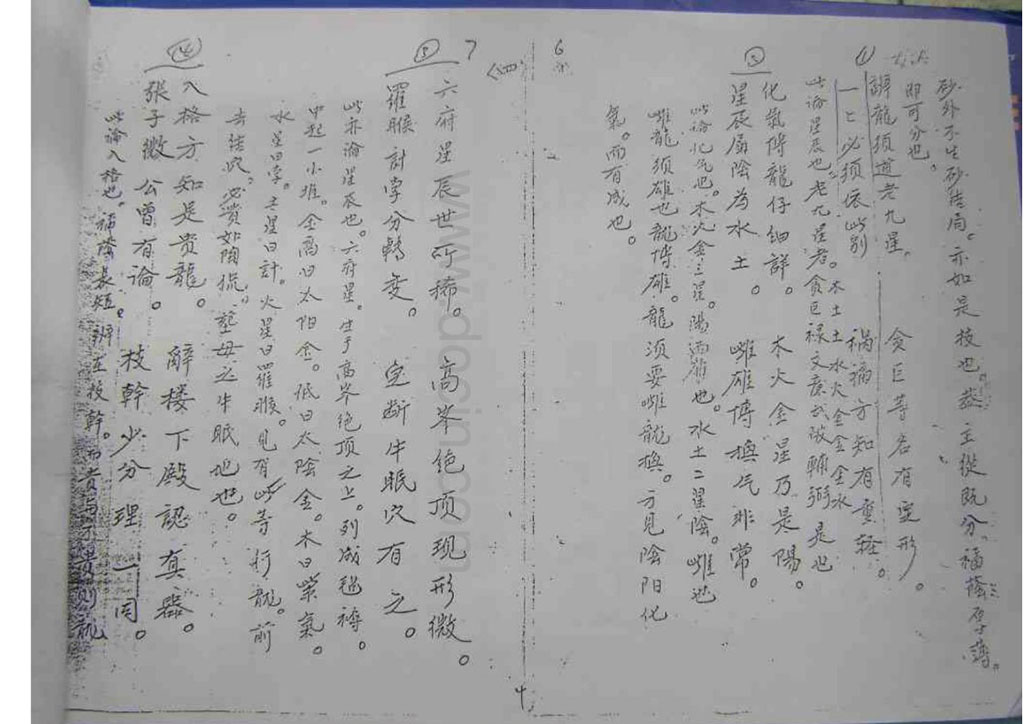 砂外不生砂結局。亦如是枝也。蓋主從既分。福蔭厚薄。
即可分也。
辨龍須道老九星。 貪巨等名有定形。
一一必須依此別 禍福方知有重輕。
此論星辰也。老九星者。貪巨祿文廉武破輔弼是也
木土土水火金金金水
化氣博龍仔細詳。 木火金星乃是陽。
星辰屬陰為水土。 雌雄博換气非常。
此論化气也。木火金三星。陽也。水土二星陰。雌也
雌龍須雄龍博。雄龍須要雌龍換。方見陰阳化
氣。而有成也。
6
7
〈四〉
六府星辰世所稀。 高峯绝顶现形微。
羅睺計孛分轉变。 定断牛眠穴有之。
此亦論星辰也。六府星。生于高峯绝顶之上。列成
中起一小堆。金高曰太阳金。低曰太陰金。木曰紫氣。
水星曰孛。土星曰計。火星曰羅睺。見有此等行龍。前
去結穴。必貴如陶侃。塟母之牛眠地也。
入格方知是贵龍。 辭楼下殿認真器。
張子微公曾有論。 枝幹少分理一同。
此論入格也。福蔭長短。辨在枝幹。而貴與不貴則龍
4
www.docin.com